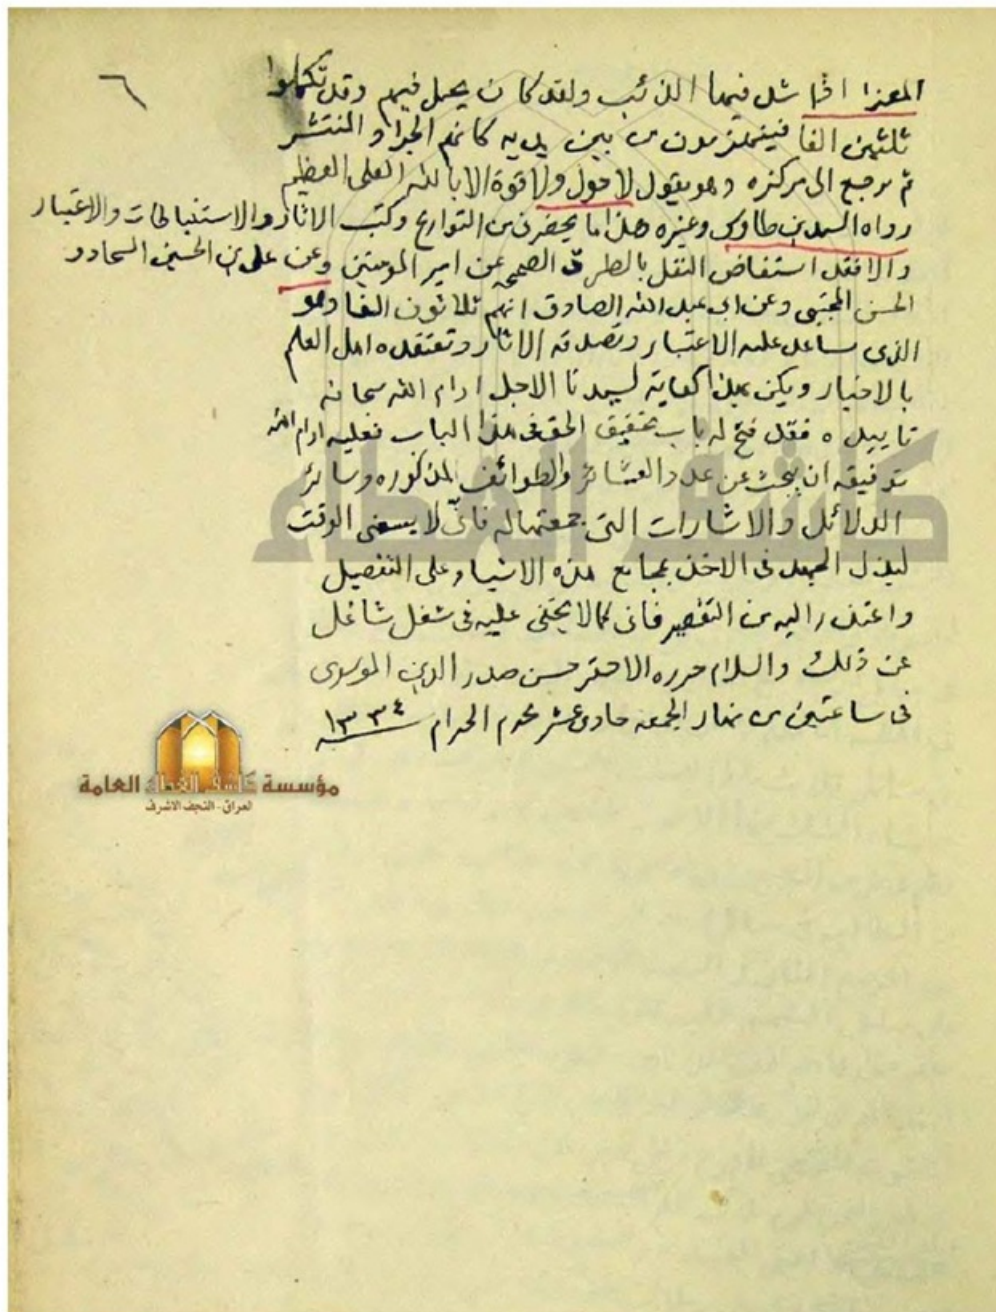 ٦
المعزا اذا شد فيها الذئب ولقد كان يحمل فيهم وقد تكملوا
ثلثين الفا فينهزمون من بين يديه كانهم الجراد المنتشر
ثم يرجع الى مركزه وهو يقول لا حول ولا قوة الا بالله العلى العظيم
رواه السيد بن طاوس وغيره هذا ما يحضرني من التواريخ وكتب الاثار والاستنباطات والاعتبار
والا فقد استفاض النقل بالطرق الصحيحه عن امير المومنين وعن على بن الحسين السجاد و
الحسن المجتبى وعن ابى عبد الله الصادق انهم ثلاثون الفا وهو
الذى يساعد عليه الاعتبار وتصدقه الاثار وتعتقده اهل العلم
بالاخبار ويكفى بهذا كفاية لسيدنا الاجل ادام الله سحانه
تاييده فقد فتح له باب تحقيق الحق فى هذا الباب فعليه ادام الله
توفيقه ان يبحث عن عدد العشائر والطوائف المذكوره وسائر
الدلائل والاشارات التى جمعتها له فانى لا يسعنى الوقت
لبذل الجهد فى الاخذ بمجامع هذه الاشياء على التفصيل
واعتذر اليه من التقصير فانى كما لا يخفى عليه فى شغل شاغل
عن ذلك والسلام حرره الاحقر حسن صدر الدين الموسوى
فى ساعتين من نهار الجمعه حادى عشر محرم الحرام ١٣٣٤
كاشف الغطاء
مؤسسة كاشف الغطاء العامة
العراق - النجف الاشرف